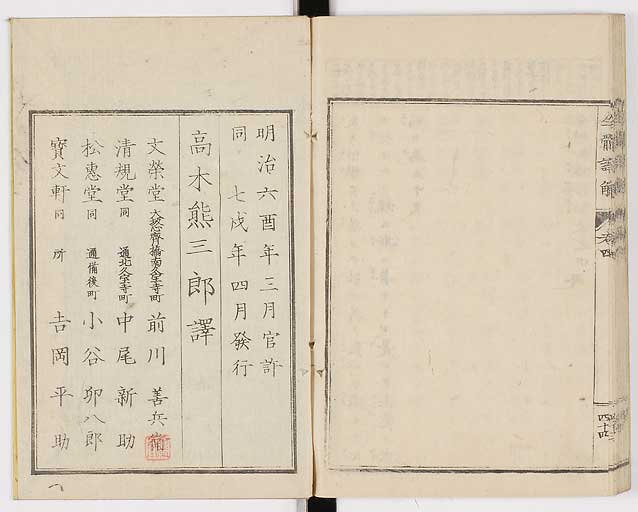 全體新論解
卷四
明治六酉年三月官許
同 七戌年四月發行
高木熊三郎譯
文榮堂 前川 善兵衛
清規堂 同 通北久宝寺町 中尾 新助
松惠堂 同 通備後町 小谷 卯八郎
寳文軒 同 所 吉岡 平助